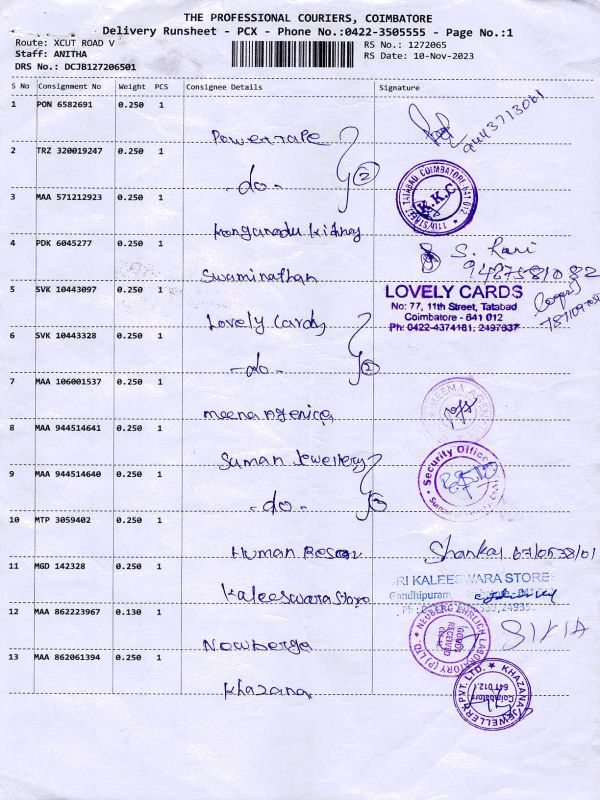 THE PROFESSIONAL COURIERS, COIMBATORE
Delivery Runsheet - PCX - Phone No.:0422-3505555 - Page No.:1
Route: XCUT ROAD V
Staff: ANITHA
DRS No.: DCJB127206501
RS No.: 1272065
RS Date: 10-Nov-2023
S No Consignment No Weight PCS Consignee Details Signature
1 PON 6582691 0.250 1
Powertape
9443713061
2 TRZ 320019247 0.250 1
-do- 2
TATABAD COIMBATORE-641 012
K.K.C
11th STREET
3 MAA 571212923 0.250 1
Konganadu Kidney
4 PDK 6045277 0.250 1
Swaminathan
S. Rani
9487581082
5 SVK 10443097 0.250 1
Lovely Cards
LOVELY CARDS
No: 77, 11th Street, Tatabad
Coimbatore - 641 012
Ph: 0422-4374181, 2497837
6 SVK 10443328 0.250 1
-do- 2
7 MAA 106001537 0.250 1
meena agenica
MEENA
8 MAA 944514641 0.250 1
Suman Jewellery
Security Officer
9 MAA 944514640 0.250 1
-do-
10 MTP 3059402 0.250 1
Human Resou
Shankar
11 MGD 142328 0.250 1
Kaleeswara Store
SRI KALEESWARA STORE
Gandhipuram,
12 MAA 862223967 0.130 1
Newberga
NEUBERG EHRLICH LABORATORY (P) LTD.
GOODS
RECEIVED
13 MAA 862061394 0.250 1
Khazana
KHAZANA JEWELLERY PVT. LTD.
Coimbatore
641 012.